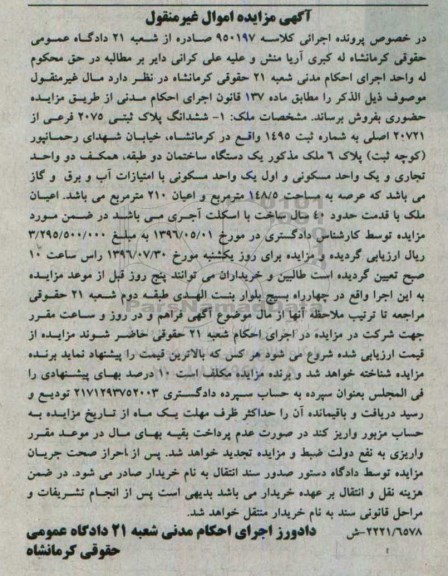 آگهی مزایده اموال غیرمنقول
در خصوص پرونده اجرائی کلاسه ۹۵۰۱۹۷ صادره از شعبه ۲۱ دادگاه عمومی
حقوقی کرمانشاه له کبری آریا منش و علیه علی کرانی دایر بر مطالبه در حق محکوم
له واحد اجرای احکام مدنی شعبه ۲۱ حقوقی کرمانشاه در نظر دارد مال غیرمنقول
موصوف ذیل الذکر را مطابق ماده ۱۳۷ قانون اجرای احکام مدنی از طریق مزایده
حضوری بفروش برساند. مشخصات ملک: ۱- ششدانگ پلاک ثبتی ۲۰۷۵ فرعی از
۲۰۷۲۱ اصلی به شماره ثبت ۱۴۹۵ واقع در کرمانشاه، خیابان شهدای رحمانپور
(کوچه ثبت) پلاک ۶ ملک مذکور یک دستگاه ساختمان دو طبقه، همکف دو واحد
تجاری و یک واحد مسکونی و اول یک واحد مسکونی با امتیازات آب و برق و گاز
می باشد که عرصه به مساحت ۱۴۸/۵ مترمربع و اعیان ۲۱۰ مترمربع می باشد. اعیان
ملک با قدمت حدود ۴۰ سال ساخت با اسکلت آجری می باشد در ضمن مورد
مزایده توسط کارشناس دادگستری در مورخ ۱۳۹۶/۰۵/۰۱ به مبلغ ۳/۲۹۵/۵۰۰/۰۰۰
ریال ارزیابی گردیده و مزایده برای روز یکشنبه مورخ ۱۳۹۶/۰۷/۳۰ راس ساعت ۱۰
صبح تعیین گردیده است طالبین و خریداران می توانند پنج روز قبل از موعد مزایده
به این اجرا واقع در چهارراه بسیج بلوار بنت الهدی طبقه دوم شعبه ۲۱ حقوقی
مراجعه تا ترتیب ملاحظه آنها از مال موضوع آگهی فراهم و در روز و ساعت مقرر
جهت شرکت در مزایده در اجرای احکام شعبه ۲۱ حقوقی حاضر شوند مزایده از
قیمت ارزیابی شده شروع می شود هر کس که بالاترین قیمت را پیشنهاد نماید برنده
مزایده شناخته خواهد شد و برنده مزایده مکلف است ۱۰ درصد بهای پیشنهادی را
فی المجلس بعنوان سپرده به حساب سپرده دادگستری ۲۱۷۱۲۹۳۷۵۲۰۰۳ تودیع و
رسید دریافت و باقیمانده آن را حداکثر ظرف مهلت یک ماه از تاریخ مزایده به
حساب مزبور واریز کند در صورت عدم پرداخت بقیه بهای مال در موعد مقرر
واریزی به نفع دولت ضبط و مزایده تجدید خواهد شد. پس از احراز صحت جریان
مزایده توسط دادگاه دستور صدور سند انتقال به نام خریدار صادر می شود. در ضمن
هزینه نقل و انتقال بر عهده خریدار می باشد بدیهی است پس از انجام تشریفات و
مراحل قانونی سند به نام خریدار منتقل خواهد شد.
۲۲۲۱/۶۵۷۸-ش دادورز اجرای احکام مدنی شعبه ۲۱ دادگاه عمومی
حقوقی کرمانشاه